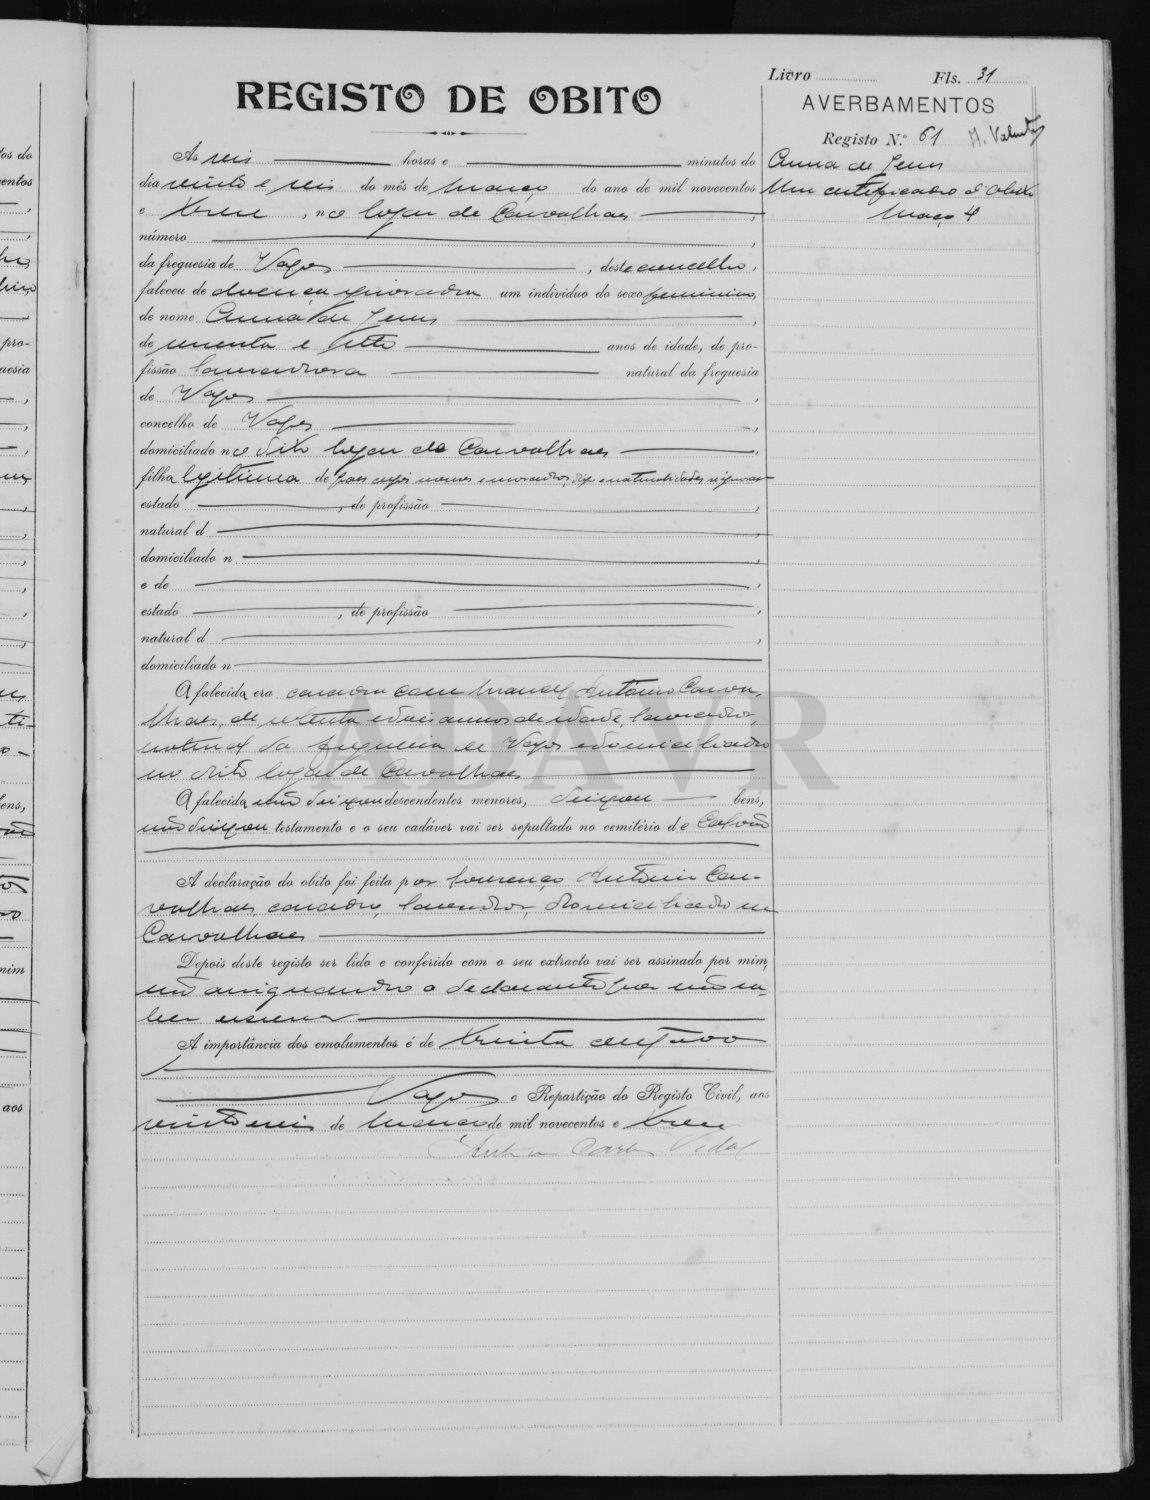 Livro Fls. 31
REGISTO DE OBITO
AVERBAMENTOS
Registo N.º 61 A. Valente
Às seis horas e minutos do
Anna de Jesus
dia vinte e seis do mês de Março do ano de mil novecentos
Um certificado d'obito
e treze, no logar de Carvalhaes,
Maço 4
número ,
da freguesia de Vagos, deste concelho,
faleceu de doença ignorada um individuo do sexo feminino,
de nome Anna de Jesus,
de setenta e oito anos de idade, de pro-
fissão lavradora natural da freguesia
de Vagos,
concelho de Vagos,
domiciliado no dito logar de Carvalhaes,
filha legitima de paes cujos nomes e naturalidades ignoram
estado , de profissão ,
natural d ,
domiciliado n ,
e de ,
estado , de profissão ,
natural d ,
domiciliado n
A falecida era casada com Manoel Antonio Carva-
lhaes, de setenta e dois annos de idade, lavrador,
natural da freguesia de Vagos e domiciliado
no dito logar de Carvalhaes
A falecida não deixou descendentes menores, deixou bens,
não deixou testamento e o seu cadáver vai ser sepultado no cemitério de Calvão
A declaração do obito foi feita por Lourenço Antonio Car-
valhaes, casado, lavrador, domiciliado em
Carvalhaes
Depois deste registo ser lido e conferido com o seu extracto vai ser assinado por mim,
não assignando o declarante por não sa-
ber escrever
A importância dos emolumentos é de trinta centavos
Vagos e Repartição do Registo Civil, aos
vinte seis de Março de mil novecentos e treze
Carlos Vidal
ADAVR